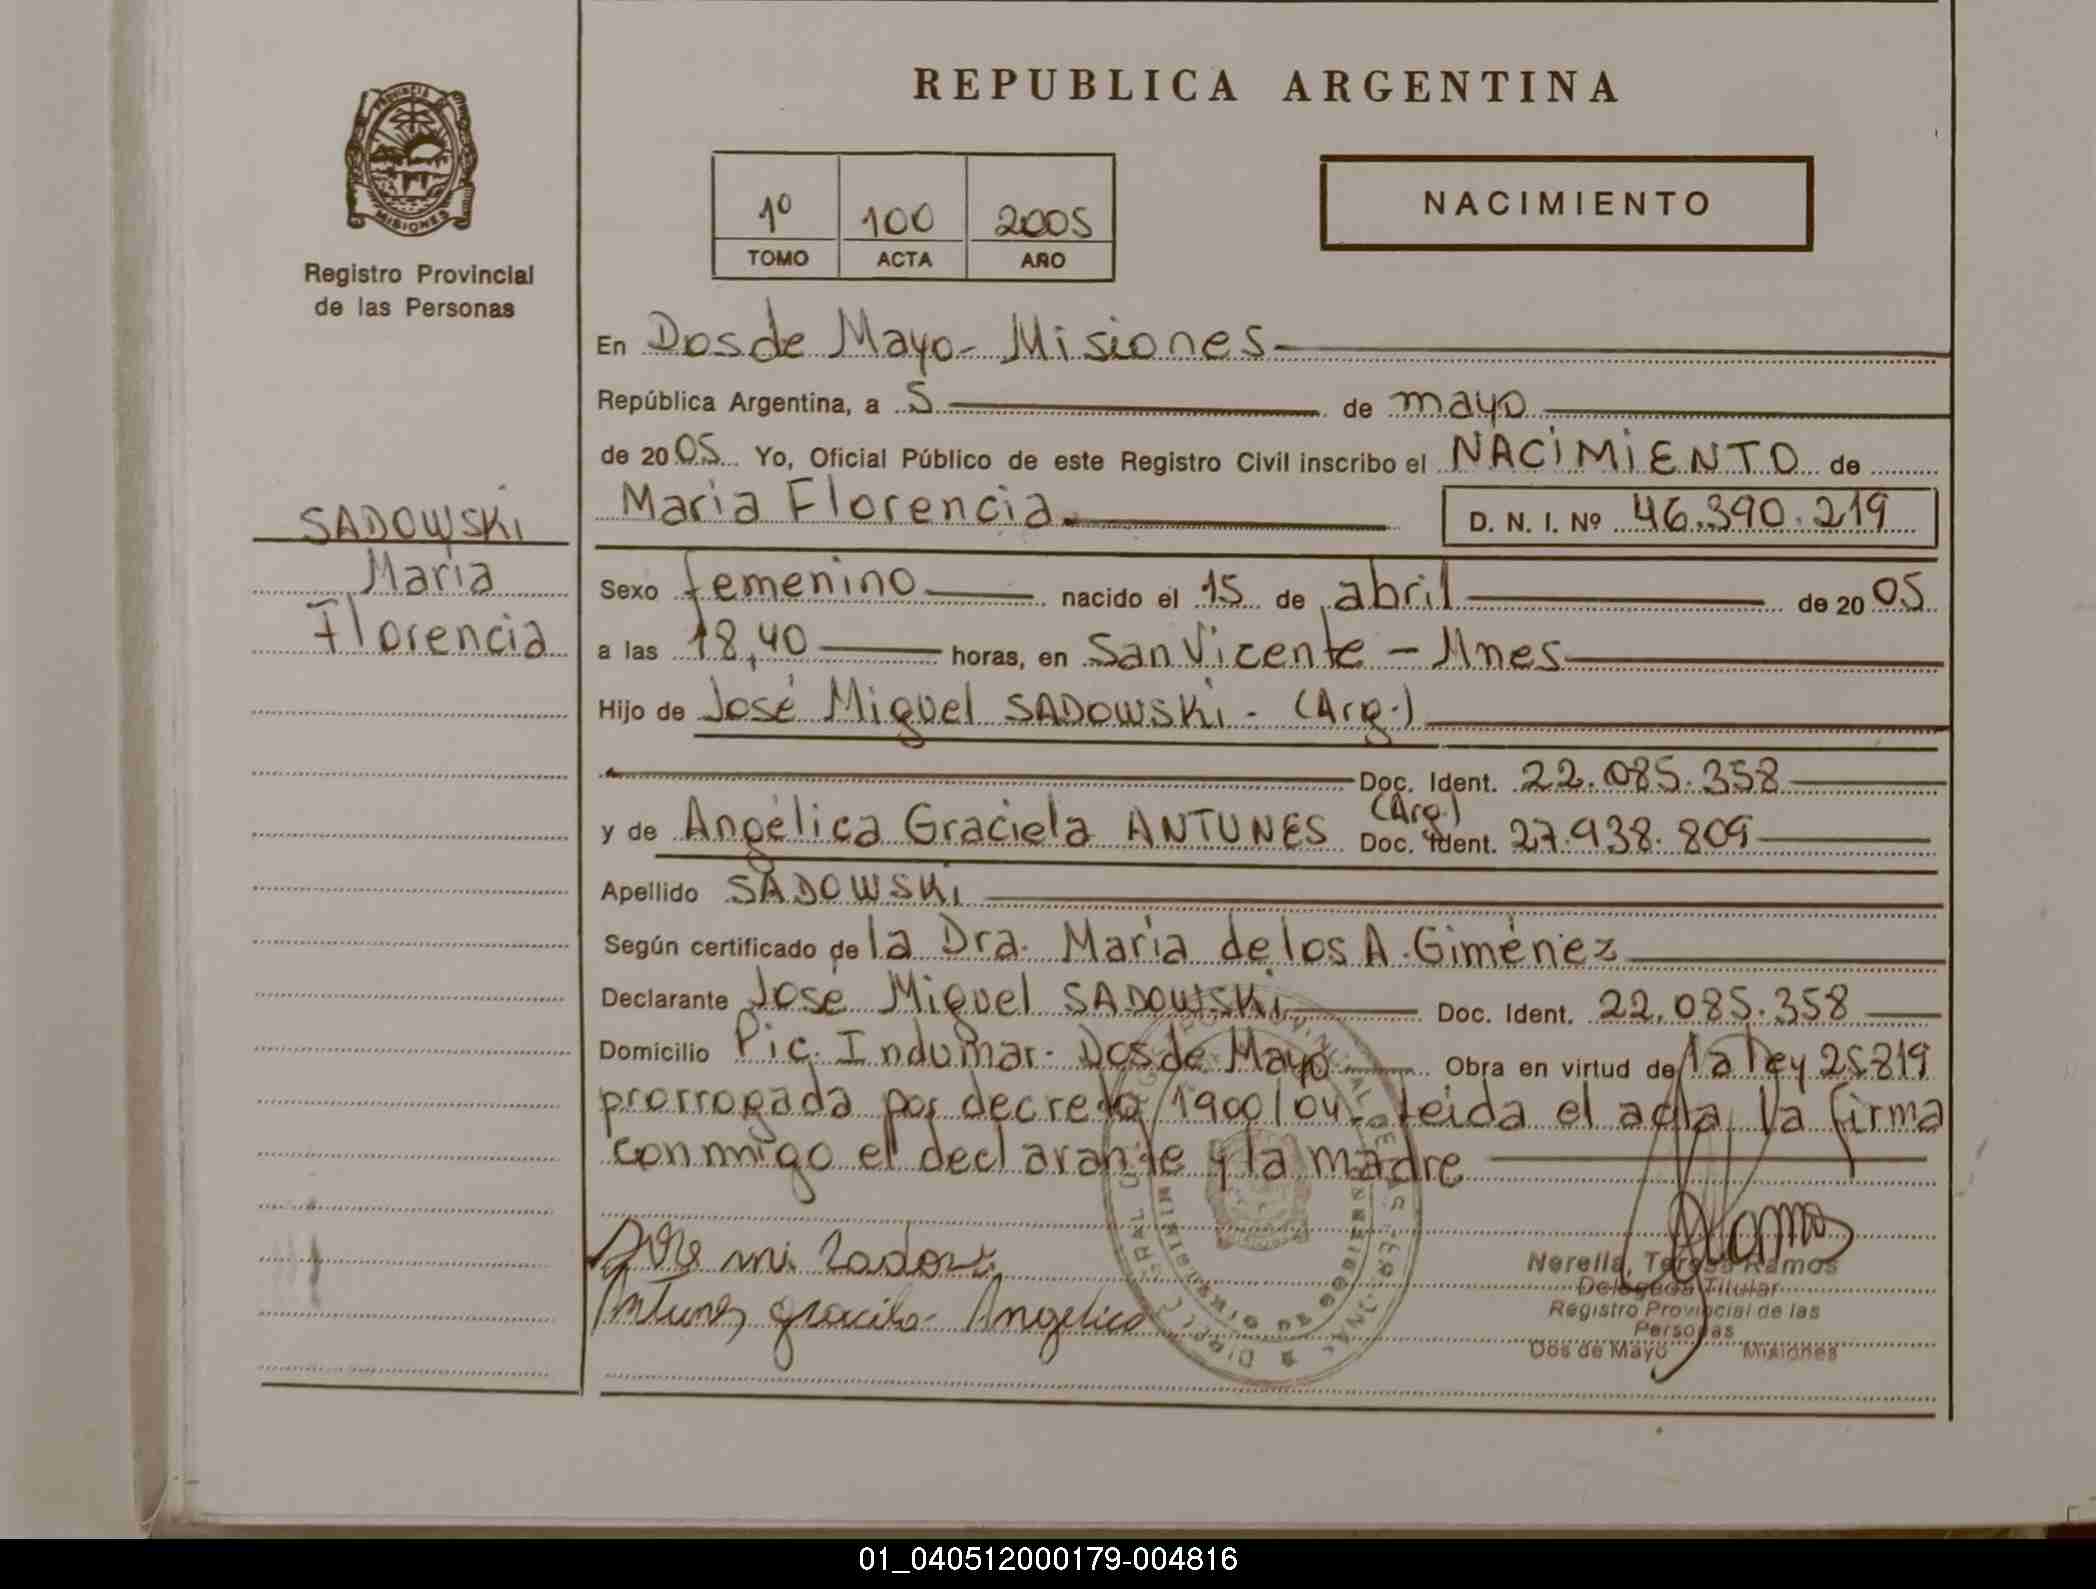 REPUBLICA ARGENTINA
PROVINCIA DE MISIONES
Registro Provincial
de las Personas
1º 100 2005
TOMO ACTA AÑO
NACIMIENTO
En Dos de Mayo - Misiones
República Argentina, a 5 de mayo
de 2005 Yo, Oficial Público de este Registro Civil inscribo el NACIMIENTO de
María Florencia D. N. I. Nº 46.390.219
SADOWSKI
María
Florencia
Sexo femenino nacido el 15 de abril de 2005
a las 18,40 horas, en San Vicente - Mnes
Hijo de José Miguel SADOWSKI - (Arg.)
Doc. Ident. 22.085.358
(Arg.)
y de Angélica Graciela ANTUNES Doc. Ident. 27.938.809
Apellido SADOWSKI
Según certificado de la Dra. María de los A. Giménez
Declarante José Miguel SADOWSKI Doc. Ident. 22.085.358
Domicilio Pic. Indumar - Dos de Mayo Obra en virtud de la ley 25819
prorrogada por decreto 1900/04. leida el acta, la firma
conmigo el declarante y la madre
Antunes Graciela Angelica
Ramos
Nerella, Teresa Ramos
Delegada Titular
Registro Provincial de las
Personas
Dos de Mayo Misiones
01_040512000179-004816